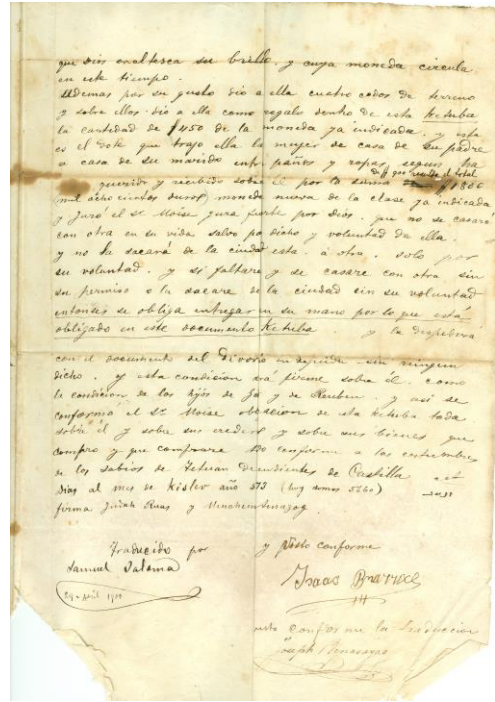 que Dios enaltesca su brillo. y cuya moneda circula
en este tiempo.
Ademas por su gusto dio a ella cuatro codos de terreno
y sobre ellos dio a ella como regalo dentro de esta Ketuba
la cantidad de $ 450 de la moneda ya indicada. y este
es el Dote que trajo ella la mujer de casa de su padre
a casa de su marido entre paños y ropas, segun ha
querido y recibido sobre él por la suma $ 1800
mil ocho cientos duros moneda nueva de la clase ya indicada
y Juró el Sr Moise jura fuerte por Dios. que no se casará
con otra en su vida salvo por dicho y voluntad de ella.
y no la sacará de la ciudad esta a otra. solo por
su voluntad. y si faltare y se casare con otra sin
su permiso o la sacare de la ciudad sin su voluntad
entonses se obliga entregar en su mano por lo que está
obligado en este documento Ketuba y la despedira
con el documento del Divorcio en seguida sin ningun
dicho. y esta condicion será firme sobre él. como
la condicion de los hijos de Gad y de Reuben. y asi se
conformó el Sr Moise obligacion de esta Ketuba toda
sobre él y sobre sus eredero y sobre sus bienes que
compro y que comprare todo conforme a las costumbres
de los sabios de Tetuan Decendientes de Castilla
dias al mes de Kislev año 573 (hoy somos 5760)
firma Judah Ruas y Menahem
Traducido por y Visto conforme
Samuel Salama
Isaac
29 Abril 1920
visto conforme la traduccion
Joseph